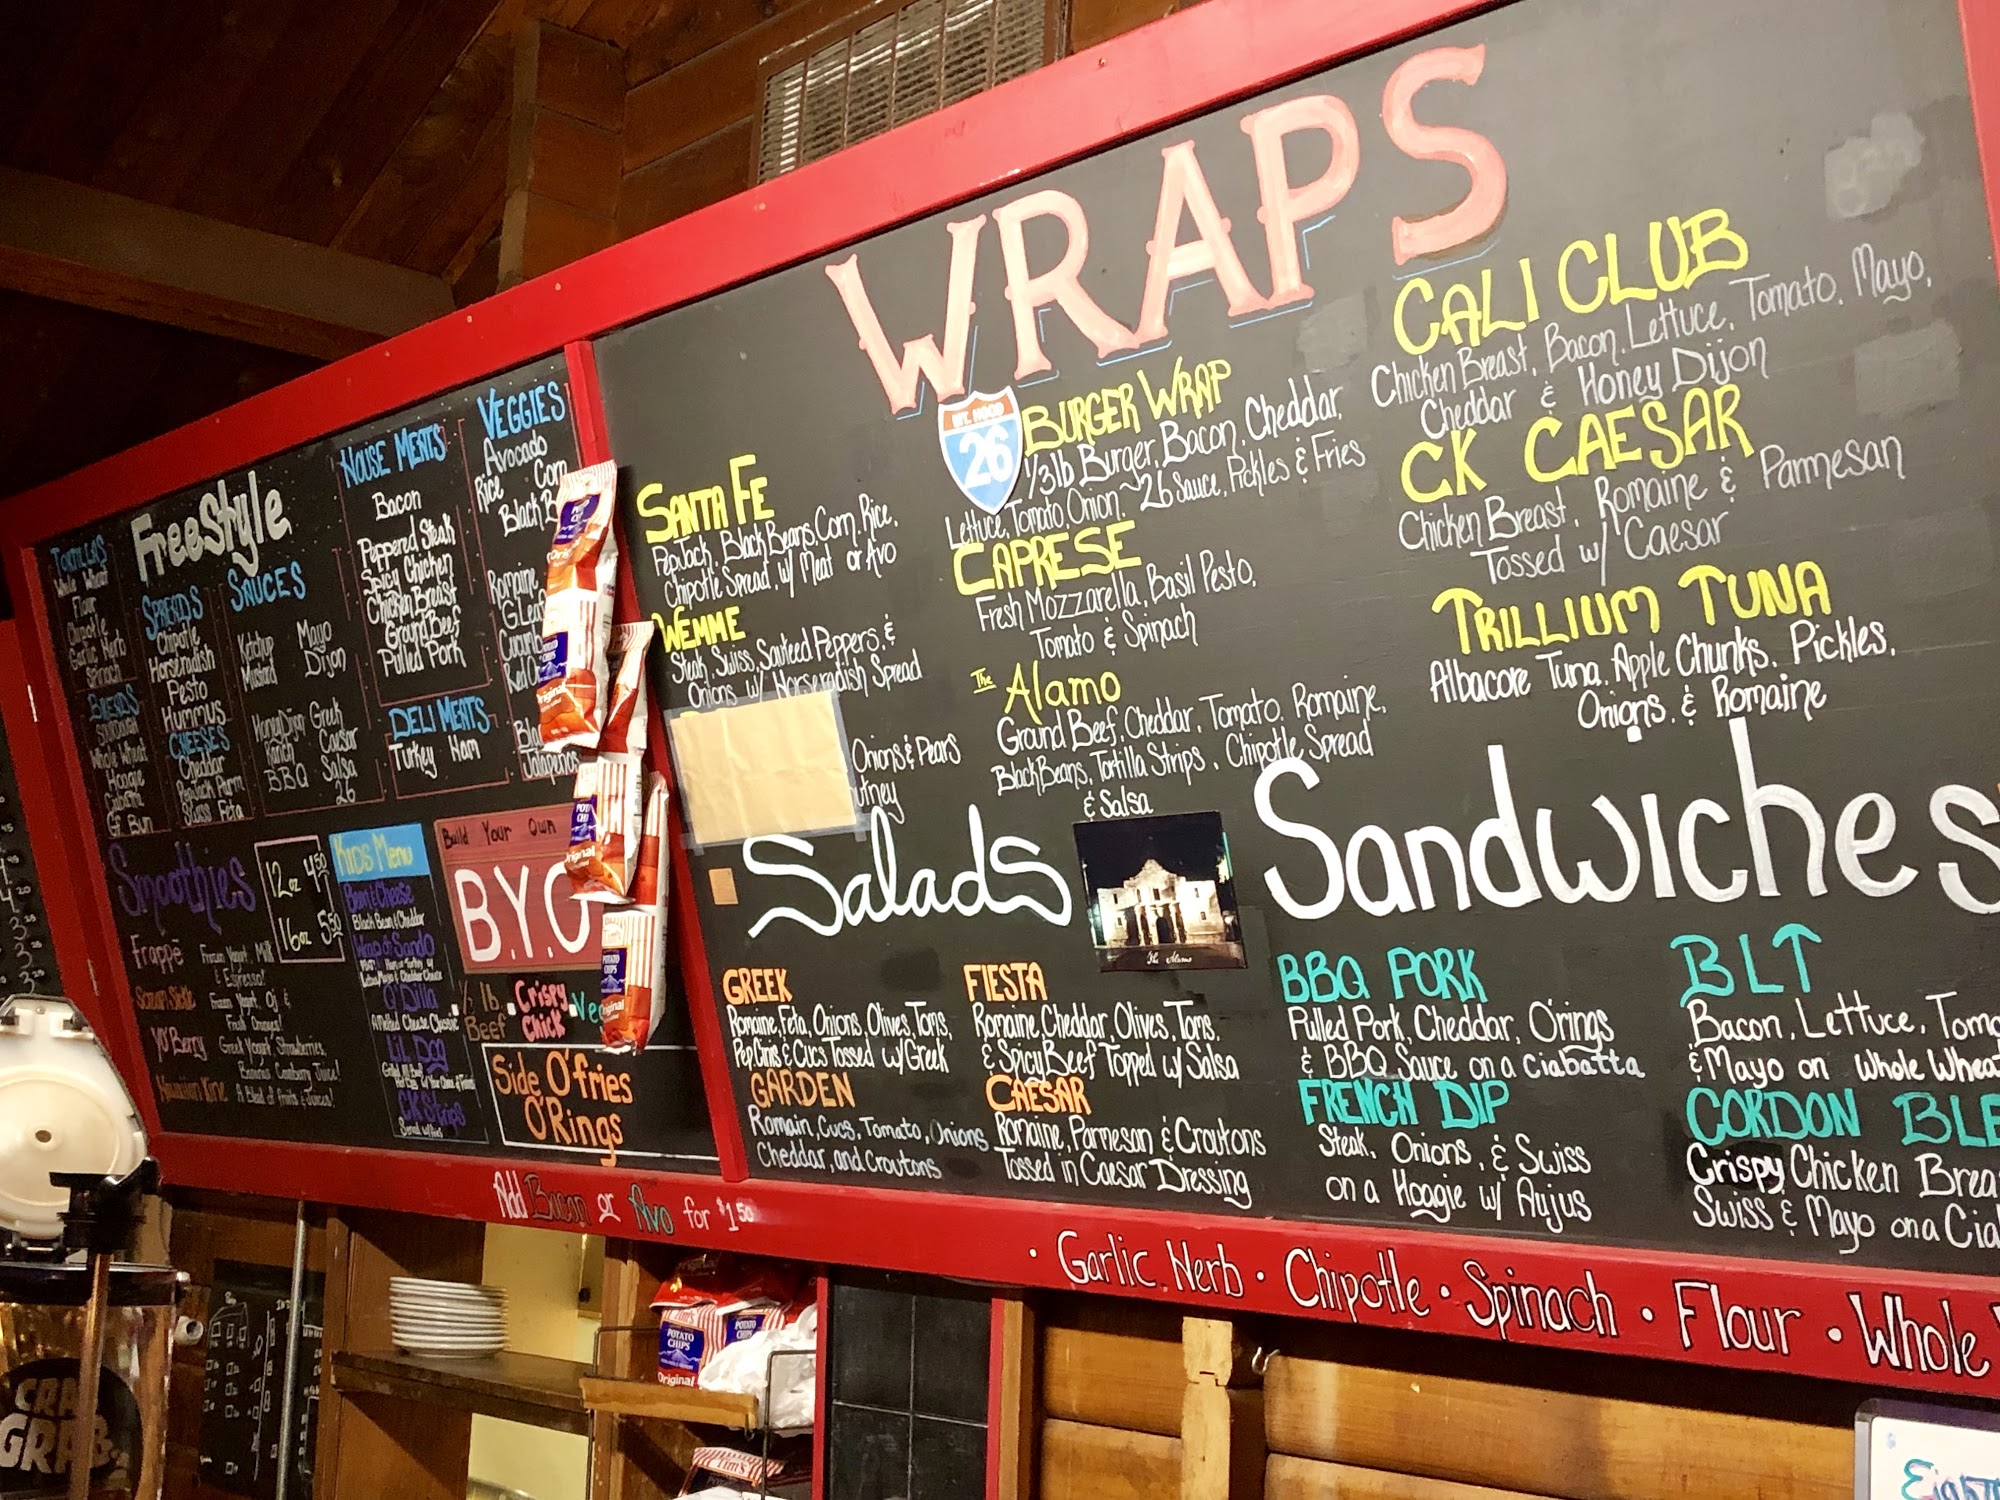 WRAPS
CALI CLUB
Chicken Breast, Bacon, Lettuce, Tomato, Mayo,
Cheddar & Honey Dijon
CK CAESAR
Chicken Breast, Romaine & Parmesan
Tossed w/ Caesar
TRILLIUM TUNA
Albacore Tuna, Apple Chunks, Pickles,
Onions, & Romaine
MT. HOOD
26
BURGER WRAP
1/3lb Burger, Bacon, Cheddar,
Lettuce, Tomato, Onion, 26 Sauce, Pickles & Fries
CAPRESE
Fresh Mozzarella, Basil Pesto,
Tomato & Spinach
The Alamo
Ground Beef, Cheddar, Tomato, Romaine,
Black Beans, Tortilla Strips, Chipotle Spread
& Salsa
SANTA FE
PepJack, Black Beans, Corn, Rice,
Chipotle Spread w/ Meat or Avo
WEMME
Steak, Swiss, Sauteed Peppers &
Onions w/ Horseradish Spread
Onions & Pears
Salads
The Alamo
GREEK
Romaine, Feta, Onions, Olives, Toms,
PepCinis & Cucs Tossed w/ Greek
GARDEN
Romain, Cucs, Tomato, Onions
Cheddar, and Croutons
FIESTA
Romaine, Cheddar, Olives, Toms,
& Spicy Beef Topped w/ Salsa
CAESAR
Romaine, Parmesan & Croutons
Tossed in Caesar Dressing
Sandwiches
BBQ PORK
Pulled Pork, Cheddar, O'rings
& BBQ Sauce on a Ciabatta
FRENCH DIP
Steak, Onions, & Swiss
on a Hoagie w/ Aujus
BLT
Bacon, Lettuce, Tom
& Mayo on Whole Wheat
CORDON BLE
Crispy Chicken Brea
Swiss & Mayo on a Cia
FreeStyle
TORTILLAS
Whole Wheat
Flour
Chipotle
Garlic Herb
Spinach
BREADS
Sourdough
Whole Wheat
Hoagie
Ciabatta
GF Bun
SPREADS
Chipotle
Horseradish
Pesto
Hummus
CHEESES
Cheddar
PepJack Parm
Swiss Feta
SAUCES
Ketchup Mayo
Mustard Dijon
Honey Dijon Greek
Ranch Caesar
BBQ Salsa
26
HOUSE MEATS
Bacon
Peppered Steak
Spicy Chicken
Chicken Breast
Ground Beef
Pulled Pork
DELI MEATS
Turkey Ham
VEGGIES
Avocado
Rice Corn
Black B
Romaine
Jalapeños
Smoothies
12oz 4.50
16oz 5.50
Frappé
Frozen Yogurt, Milk
& Espresso!
YO'Berry
Greek Yogurt, Strawberries,
A Blend of Fruits & Juices!
Kids Menu
Bean & Cheese
Black Bean & Cheddar
Wrap or Sando
O'Dilla
Lil Dog
CK Strips
Build Your Own
B.Y.O
Beef
Crispy
Chick
Side O'fries
O'Rings
Add Bacon or Avo for $1.50
• Garlic Herb • Chipotle • Spinach • Flour • Whole
POTATO
CHIPS
Original
Tim's
CRA
GRAB